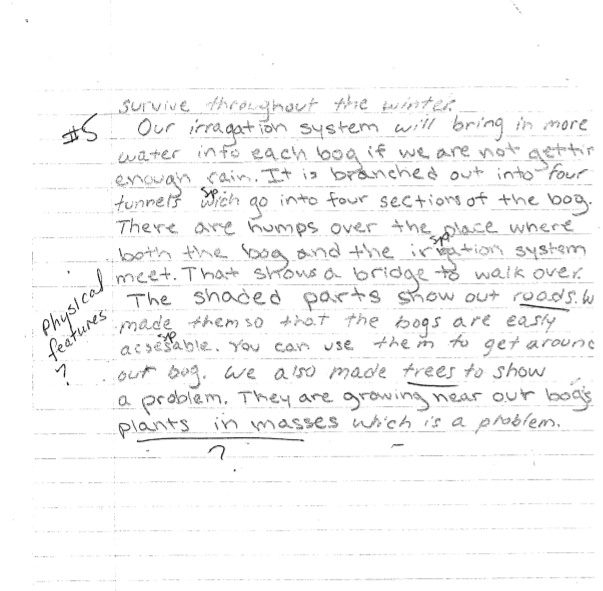 survive throughout the winter.
#5 Our irragation system will bring in more
water into each bog if we are not gettin
enough rain. It is branched out into four
sp
tunnels wich go into four sections of the bog.
There are humps over the place where
sp
both the bog and the irigation system
meet. That shows a bridge to walk over.
Physical
features
?
The shaded parts show out roads. W
made them so that the bogs are easly
sp
acsesable. You can use them to get around
out bog. We also made trees to show
a problem. They are growing near our bog's
plants in masses which is a problem.
?